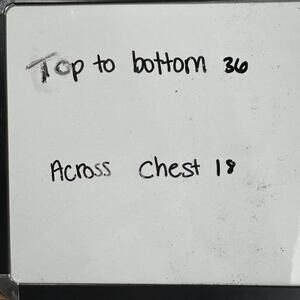 Top to bottom 36
Across Chest 18